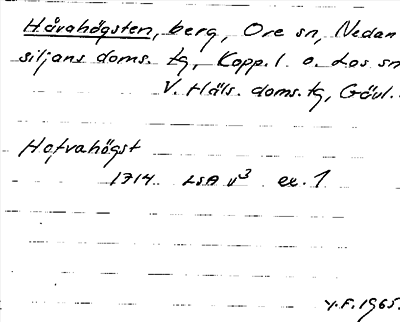 Håvahögsten, berg, Ore sn, Nedan
siljans doms. tg, Kopp. l. o. Los sn
V. Häls. doms. tg, Gävl.
Hofvahögst
1714 LSA v³ ex. 1
Y.F. 1965.